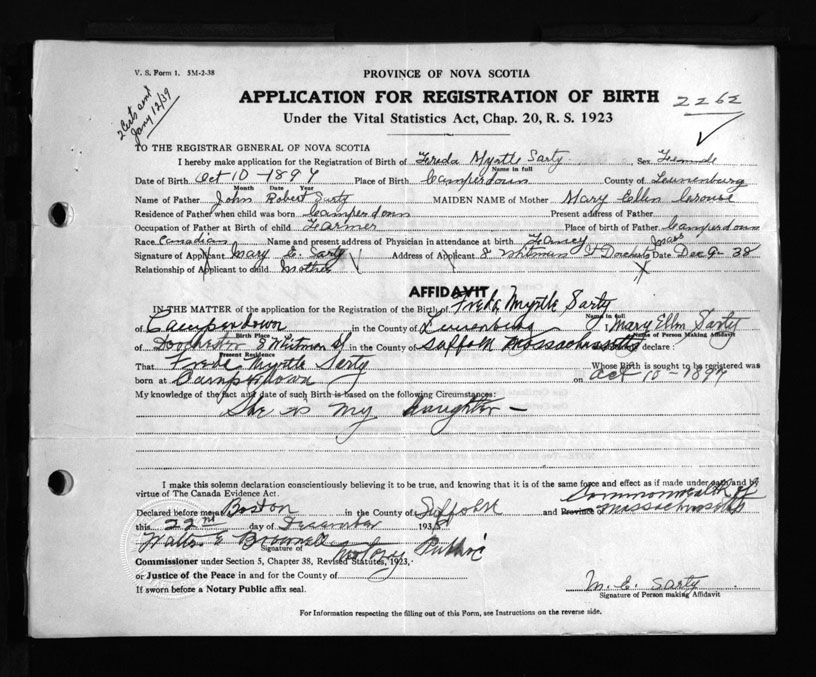 V. S. Form 1. 5M-2-38
PROVINCE OF NOVA SCOTIA
APPLICATION FOR REGISTRATION OF BIRTH 2262
Under the Vital Statistics Act, Chap. 20, R. S. 1923
Jany 12/39
TO THE REGISTRAR GENERAL OF NOVA SCOTIA
I hereby make application for the Registration of Birth of Freda Myrtle Sarty Sex Female
Name in full
Date of Birth Oct 10 - 1897 Place of Birth Camperdown County of Lunenburg
Month Date Year
Name of Father John Robert Sarty MAIDEN NAME of Mother Mary Ellen Crouse
Residence of Father when child was born Camperdown Present address of Father
Occupation of Father at Birth of child Farmer Place of birth of Father Camperdown
Race Canadian Name and present address of Physician in attendance at birth Mass
Signature of Applicant Mary E. Sarty Address of Applicant 8 Whitman St Dorchester Date Dec 9 - 38
Relationship of Applicant to child Mother
AFFIDAVIT
IN THE MATTER of the application for the Registration of the Birth of Freda Myrtle Sarty
Name in full
of Camperdown in the County of Lunenburg I, Mary Ellen Sarty
Birth Place Name of Person Making Affidavit
of Dorchester 8 Whitman St in the County of Suffolk Massachusetts declare :
Present Residence
That Freda Myrtle Sarty Whose Birth is sought to be registered was
born at Camperdown on Oct 10 - 1897
My knowledge of the fact and date of such Birth is based on the following Circumstances:
She is my Daughter -
I make this solemn declaration conscientiously believing it to be true, and knowing that it is of the same force and effect as if made under oath and by
virtue of The Canada Evidence Act.
Commonwealth of
Declared before me at Boston in the County of Suffolk and Province Massachusetts
this 22nd day of December 1938
Walter E Brownell Notary Public
Signature of
Commissioner under Section 5, Chapter 38, Revised Statutes, 1923,
or Justice of the Peace in and for the County of
If sworn before a Notary Public affix seal.
M. E. Sarty
Signature of Person making Affidavit
For Information respecting the filling out of this Form, see Instructions on the reverse side.